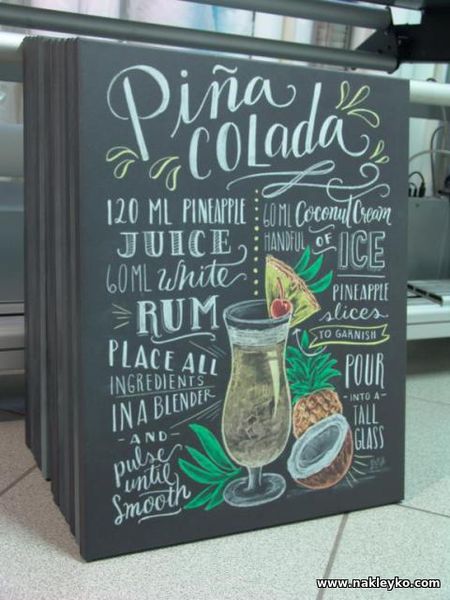 Piña
COLADA
120 ML PINEAPPLE
JUICE
60ML White
RUM
60ML Coconut Cream
HANDFUL OF
ICE
PINEAPPLE
slices
TO GARNISH
PLACE ALL
INGREDIENTS
IN A BLENDER
- AND -
pulse
until
Smooth
POUR
- INTO A -
TALL
GLASS
www.nakleyko.com